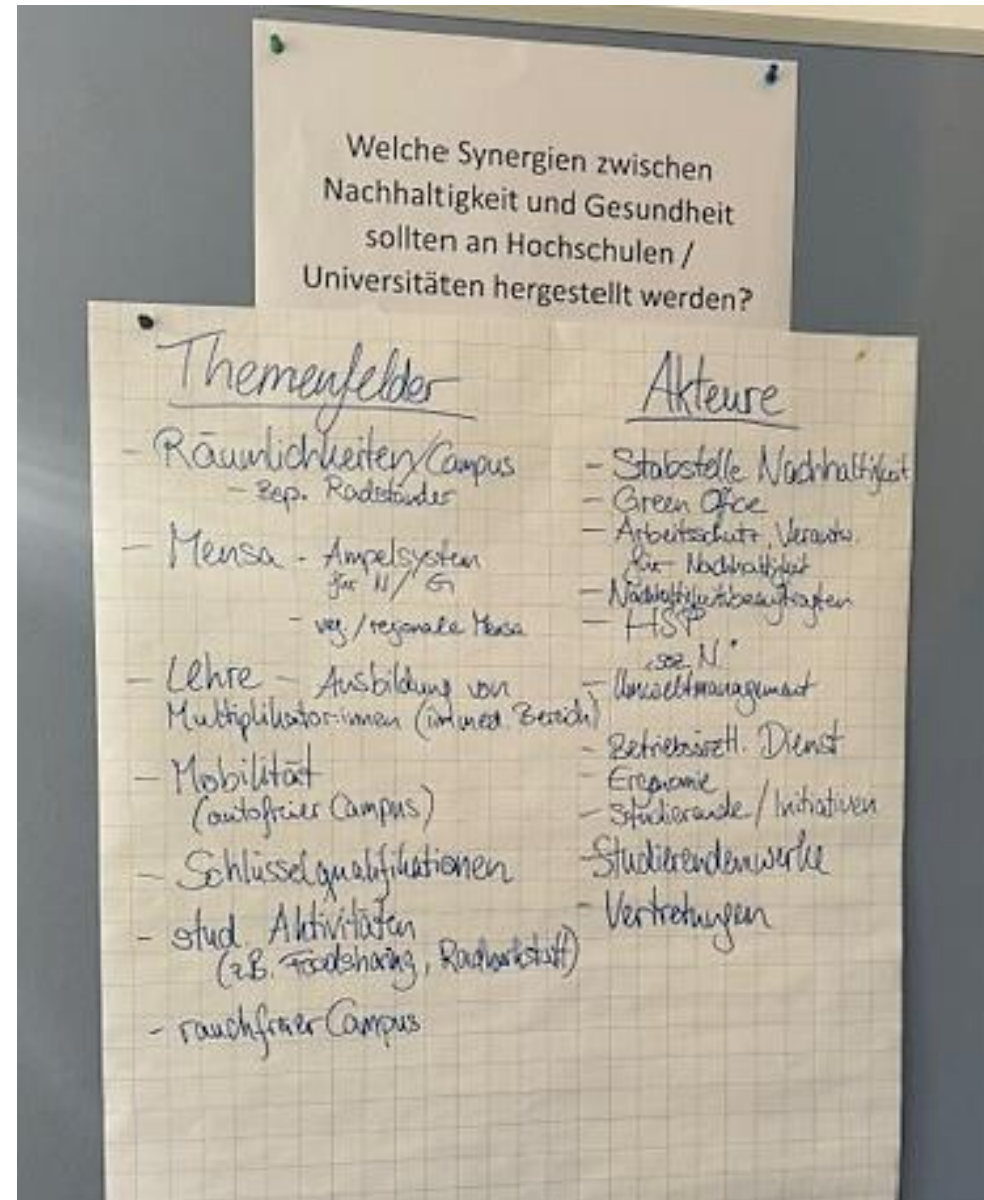 Welche Synergien zwischen
Nachhaltigkeit und Gesundheit
sollten an Hochschulen /
Universitäten hergestellt werden?
Themenfelder
- Räumlichkeiten/Campus
- Rep. Radständer
- Mensa - Ampelsystem
für N/G
- veg/regionale Mensa
- Lehre - Ausbildung von
Multiplikator-innen (im med. Bereich)
- Mobilität
(autofreier Campus)
- Schlüsselqualifikationen
- stud. Aktivitäten
(z.B. Foodsharing, Radwerkstatt)
- rauchfreier Campus
Akteure
- Stabstelle Nachhaltigkeit
- Green Office
- Arbeitsschutz, Verantw.
für Nachhaltigkeit
- Nachhaltigkeitsbeauftragten
- HSP
"soz. N."
- Umweltmanagement
- Betriebsärztl. Dienst
- Ergonomie
- Studierende / Initiativen
- Studierendenwerke
- Vertretungen